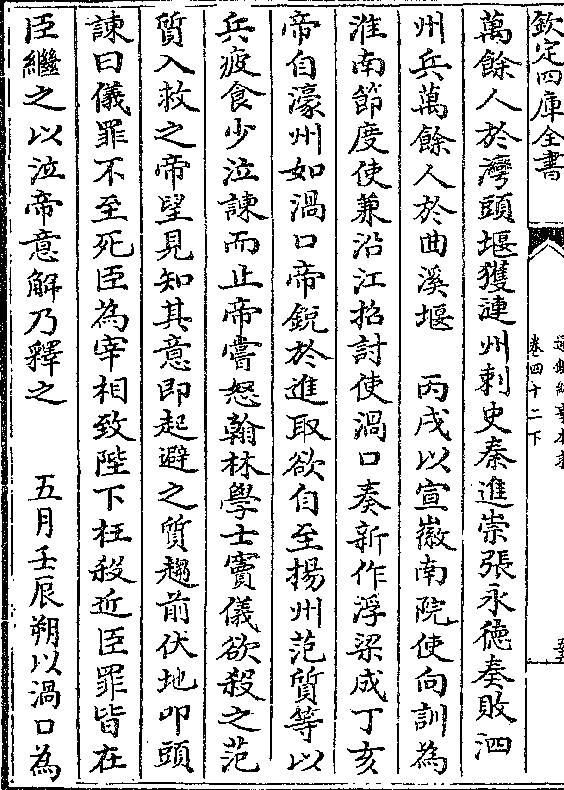 欽定四庫全書
卷四十二下
萬餘人於灣頭堰獲漣州刺史秦進崇張永德奏敗泗
州兵萬餘人於曲溪堰　丙戌以宣徽南院使向訓為
淮南節度使兼沿江招討使渦口奏新作浮梁成丁亥
帝自濠州如渦口帝鋭於進取欲自至揚州范質等以
兵疲食少泣諫而止帝嘗怒翰林學士竇儀欲殺之范
質入救之帝望見知其意即起避之質趨前伏地叩頭
諫曰儀罪不至死臣為宰相致陛下枉殺近臣罪皆在
臣繼之以泣帝意解乃釋之　　五月壬辰朔以渦口為